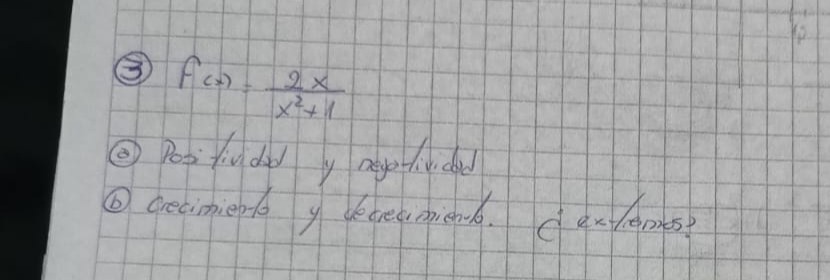 ③ f(x) = 2x / x²+1
ⓐ Positividad y negatividad
ⓑ Crecimiento y decrecimiento. ¿extremos?